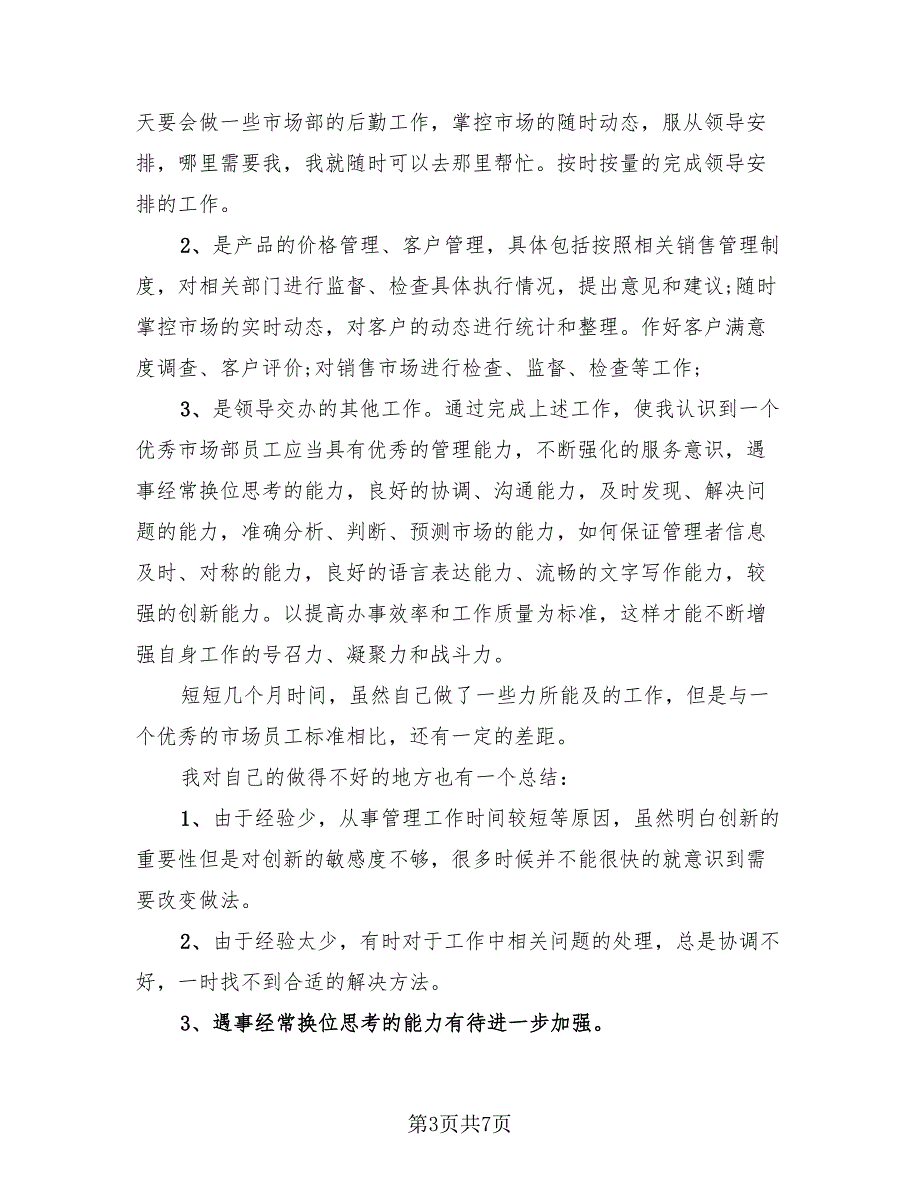 天要会做一些市场部的后勤工作，掌控市场的随时动态，服从领导安
排，哪里需要我，我就随时可以去那里帮忙。按时按量的完成领导安
排的工作。
2、是产品的价格管理、客户管理，具体包括按照相关销售管理制
度，对相关部门进行监督、检查具体执行情况，提出意见和建议;随时
掌控市场的实时动态，对客户的动态进行统计和整理。作好客户满意
度调查、客户评价;对销售市场进行检查、监督、检查等工作;
3、是领导交办的其他工作。通过完成上述工作，使我认识到一个
优秀市场部员工应当具有优秀的管理能力，不断强化的服务意识，遇
事经常换位思考的能力，良好的协调、沟通能力，及时发现、解决问
题的能力，准确分析、判断、预测市场的能力，如何保证管理者信息
及时、对称的能力，良好的语言表达能力、流畅的文字写作能力，较
强的创新能力。以提高办事效率和工作质量为标准，这样才能不断增
强自身工作的号召力、凝聚力和战斗力。
短短几个月时间，虽然自己做了一些力所能及的工作，但是与一
个优秀的市场员工标准相比，还有一定的差距。
我对自己的做得不好的地方也有一个总结：
1、由于经验少，从事管理工作时间较短等原因，虽然明白创新的
重要性但是对创新的敏感度不够，很多时候并不能很快的就意识到需
要改变做法。
2、由于经验太少，有时对于工作中相关问题的处理，总是协调不
好，一时找不到合适的解决方法。
3、遇事经常换位思考的能力有待进一步加强。
第3页共7页